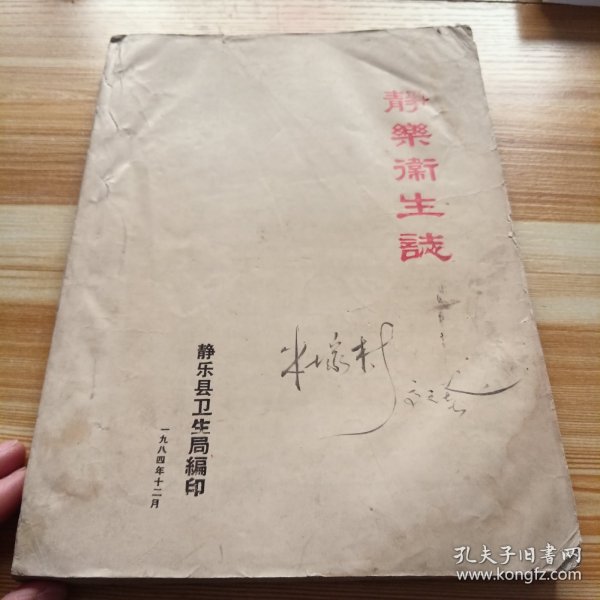 靜樂衞生誌
静乐县卫生局編印
一九八四年十二月
孔夫子旧書网
www.kongfz.com